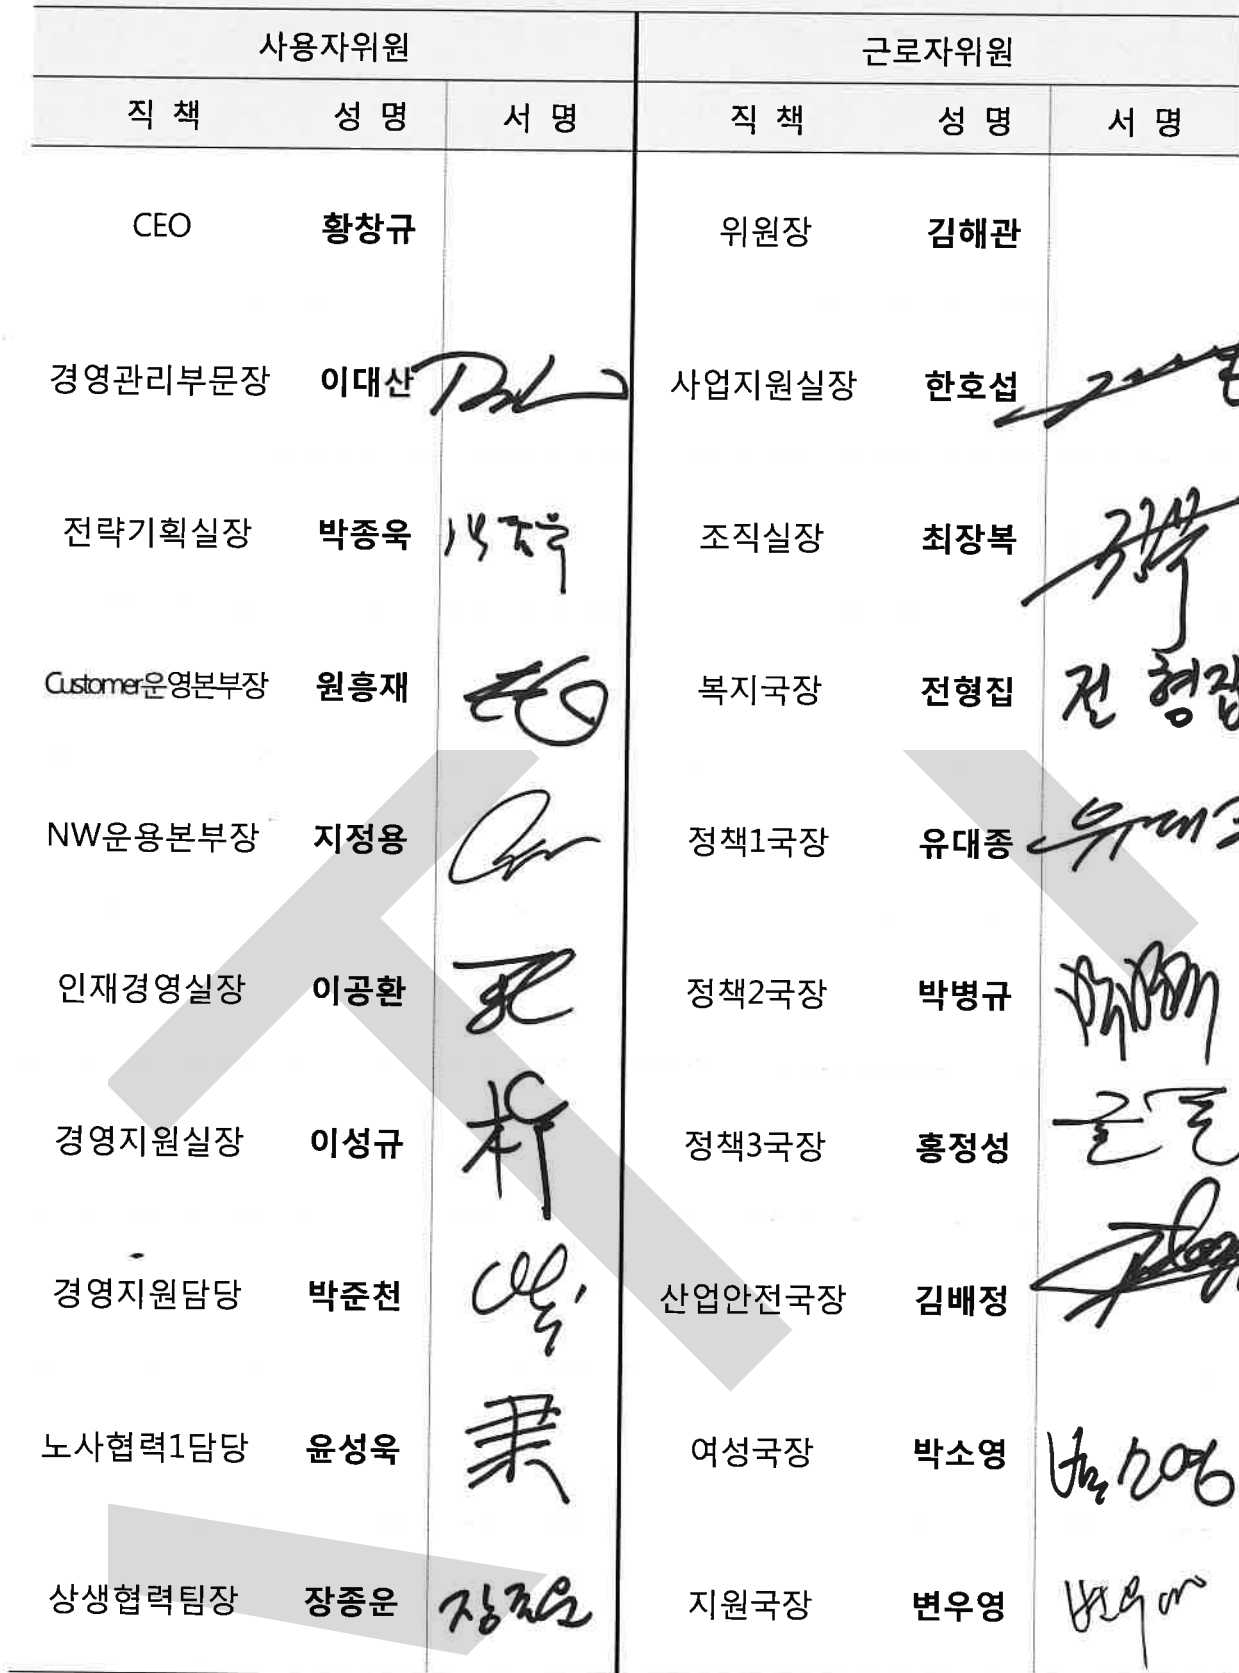 사용자위원 근로자위원
직 책 성 명 서 명 직 책 성 명 서 명
CEO 황창규 위원장 김해관
경영관리부문장 이대산 사업지원실장 한호섭
전략기획실장 박종욱 박종욱 조직실장 최장복
Customer운영본부장 원흥재 복지국장 전형집 전 형집
NW운용본부장 지정용 정책1국장 유대종 유대종
인재경영실장 이공환 정책2국장 박병규
경영지원실장 이성규 정책3국장 홍정성
경영지원담당 박준천 산업안전국장 김배정
노사협력1담당 윤성욱 여성국장 박소영 박소영
상생협력팀장 장종운 장종운 지원국장 변우영 변우영